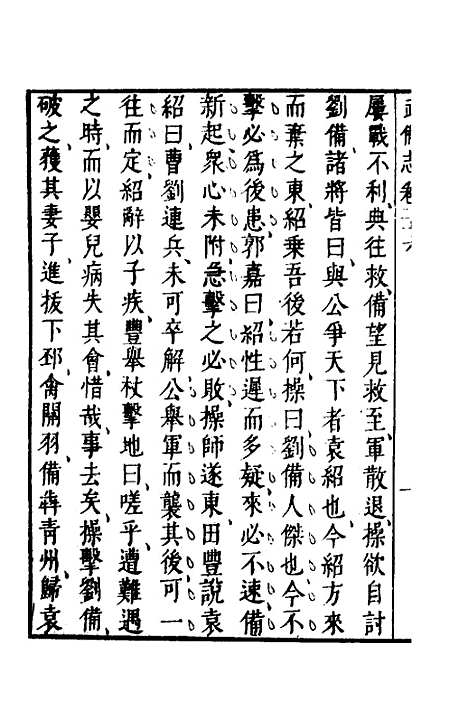 武備志卷二十六
一
屢戰不利典往救備望見救至軍散退操欲自討
劉備諸將皆曰與公爭天下者袁紹也今紹方來
而棄之東紹乗吾後若何操曰劉備人傑也今不
擊必爲後患郭嘉曰紹性遲而多疑來必不速備
新起衆心未附急擊之必敗操師遂東田豐說袁
紹曰曹劉連兵未可卒解公舉軍而襲其後可一
往而定紹辭以子疾豐舉杖擊地曰嗟乎遭難遇
之時而以嬰兒病失其會惜哉事去矣操擊劉備
破之獲其妻子進拔下邳禽關羽備犇青州歸袁